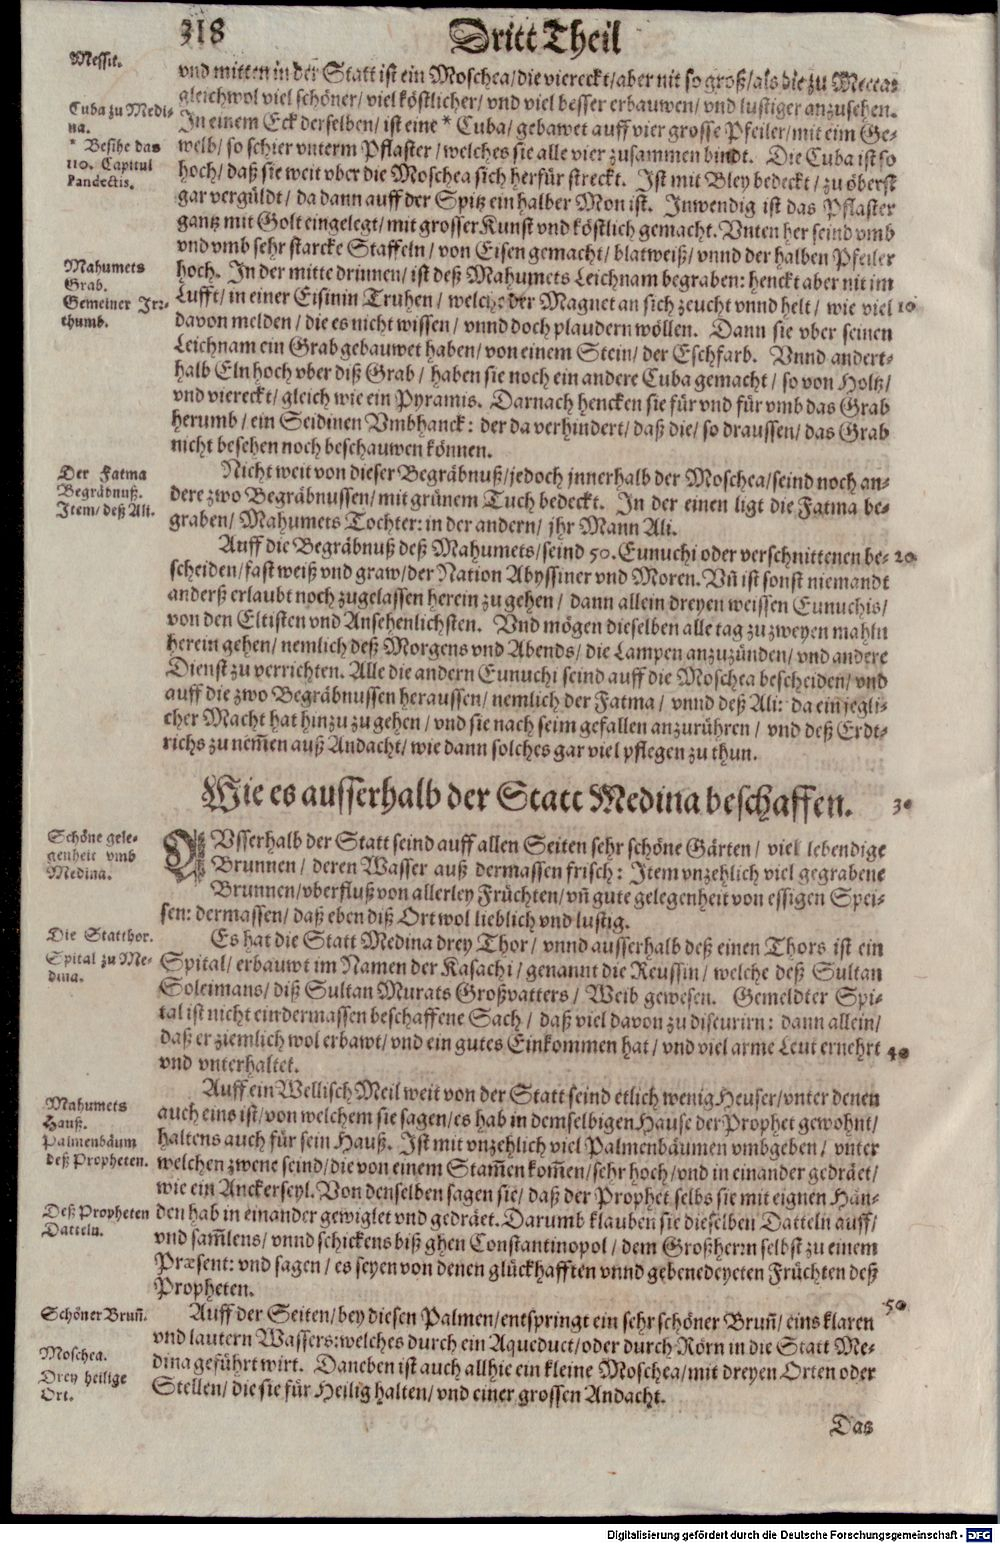 318
Dritt Theil
Messit.
vnd mitten in der Statt ist ein Moschea/ die viereckt/ aber nit so groß/ als die zu Mecca:
gleichwol viel schöner/ viel köstlicher/ vnd viel besser erbauwen/ vnd lustiger anzusehen.
Cuba zu Medi-
na.
* Besihe das
110. Capitul
Pandectis.
In einem Eck derselben/ ist eine * Cuba/ gebawet auff vier grosse Pfeiler/ mit eim Ge-
welb/ so schier vnterm Pflaster/ welches sie alle vier zusammen bindt. Die Cuba ist so
hoch/ daß sie weit vber die Moschea sich herfür streckt. Ist mit Bley bedeckt/ zu öberst
gar vergüldt/ da dann auff der Spitz ein halber Mon ist. Inwendig ist das Pflaster
gantz mit Golt eingelegt/ mit grosser Kunst vnd köstlich gemacht. Vnten her seind vmb
vnd vmb sehr starcke Staffeln/ von Eisen gemacht/ blatweiß/ vnnd der halben Pfeiler
Mahumets
Grab.
Gemeiner Irr-
thumb.
hoch. In der mitte drinnen/ ist deß Mahumets Leichnam begraben: henckt aber nit im
Lufft/ in einer Eisinin Truhen/ welche der Magnet an sich zeucht vnnd helt/ wie viel 10
davon melden/ die es nicht wissen/ vnnd doch plaudern wöllen. Dann sie vber seinen
Leichnam ein Grab gebauwet haben/ von einem Stein/ der Eschfarb. Vnnd andert-
halb Eln hoch vber diß Grab/ haben sie noch ein andere Cuba gemacht/ so von Holtz/
vnd viereckt/ gleich wie ein Pyramis. Darnach hencken sie für vnd für vmb das Grab
herumb/ ein Seidinen Vmbhanck: der da verhindert/ daß die/ so draussen/ das Grab
nicht besehen noch beschauwen können.
Der Fatma
Begräbnuß.
Item/ deß Ali.
Nicht weit von dieser Begräbnuß/ jedoch jnnerhalb der Moschea/ seind noch an-
dere zwo Begräbnussen/ mit grünem Tuch bedeckt. In der einen ligt die Fatma be-
graben/ Mahumets Tochter: in der andern/ jhr Mann Ali.
Auff die Begräbnuß deß Mahumets/ seind 50. Eunuchi oder verschnittenen be- 20
scheiden/ fast weiß vnd graw/ der Nation Abyssiner vnd Moren. Vñ ist sonst niemandt
anderß erlaubt noch zugelassen herein zu gehen/ dann allein dreyen weissen Eunuchis/
von den Eltisten vnd Ansehenlichsten. Vnd mögen dieselben alle tag zu zweyen mahln
herein gehen/ nemlich deß Morgens vnd Abends/ die Lampen anzuzünden/ vnd andere
Dienst zu verrichten. Alle die andern Eunuchi seind auff die Moschea bescheiden/ vnd
auff die zwo Begräbnussen heraussen/ nemlich der Fatma/ vnnd deß Ali: da ein jegli-
cher Macht hat hinzu zu gehen/ vnd sie nach seim gefallen anzurühren/ vnd deß Erdt-
richs zu nem̃en auß Andacht/ wie dann solches gar viel pflegen zu thun.
Wie es ausserhalb der Statt Medina beschaffen. 30
Schöne gele-
genheit vmb
Medina.
AVsserhalb der Statt seind auff allen Seiten sehr schöne Gärten/ viel lebendige
Brunnen/ deren Wasser auß dermassen frisch: Item vnzehlich viel gegrabene
Brunnen/ vberfluß von allerley Früchten/ vñ gute gelegenheit von essigen Spei-
sen: dermassen/ daß eben diß Ort wol lieblich vnd lustig.
Die Statthor.
Spital zu Me-
dina.
Es hat die Statt Medina drey Thor/ vnnd ausserhalb deß einen Thors ist ein
Spital/ erbauwt im Namen der Kasachi/ genannt die Reussin/ welche deß Sultan
Soleimans/ diß Sultan Murats Großvatters/ Weib gewesen. Gemeldter Spi-
tal ist nicht ein dermassen beschaffene Sach/ daß viel davon zu discurirn: dann allein/
daß er ziemlich wol erbawt/ vnd ein gutes Einkommen hat/ vnd viel arme Leut ernehrt 40
vnd vnterhaltet.
Mahumets
Hauß.
Palmenbäum
deß Propheten.
Auff ein Wellisch Meil weit von der Statt seind etlich wenig Heuser/ vnter denen
auch eins ist/ von welchem sie sagen/ es hab in demselbigen Hause der Prophet gewohnt/
haltens auch für sein Hauß. Ist mit vnzehlich viel Palmenbäumen vmbgeben/ vnter
welchen zwene seind/ die von einem Stam̃en kom̃en/ sehr hoch/ vnd in einander gedräet/
wie ein Anckerseyl. Von denselben sagen sie/ daß der Prophet selbs sie mit eignen Hän-
Deß Propheten
Datteln.
den hab in einander gewiglet vnd gedräet. Darumb klauben sie dieselben Datteln auff/
vnd sam̃lens/ vnnd schickens biß ghen Constantinopol/ dem Großherrn selbst zu einem
Præsent: vnd sagen/ es seyen von denen glückhafften vnnd gebenedeyeten Früchten deß
Propheten.
50
Schöner Bruñ.
Moschea.
Drey heilige
Ort.
Auff der Seiten/ bey diesen Palmen/ entspringt ein sehr schöner Bruñ/ eins klaren
vnd lautern Wassers: welches durch ein Aqueduct/ oder durch Rörn in die Statt Me-
dina geführt wirt. Daneben ist auch allhie ein kleine Moschea/ mit dreyen Orten oder
Stellen/ die sie für Heilig halten/ vnd einer grossen Andacht.
Das
Digitalisierung gefördert durch die Deutsche Forschungsgemeinschaft - DFG